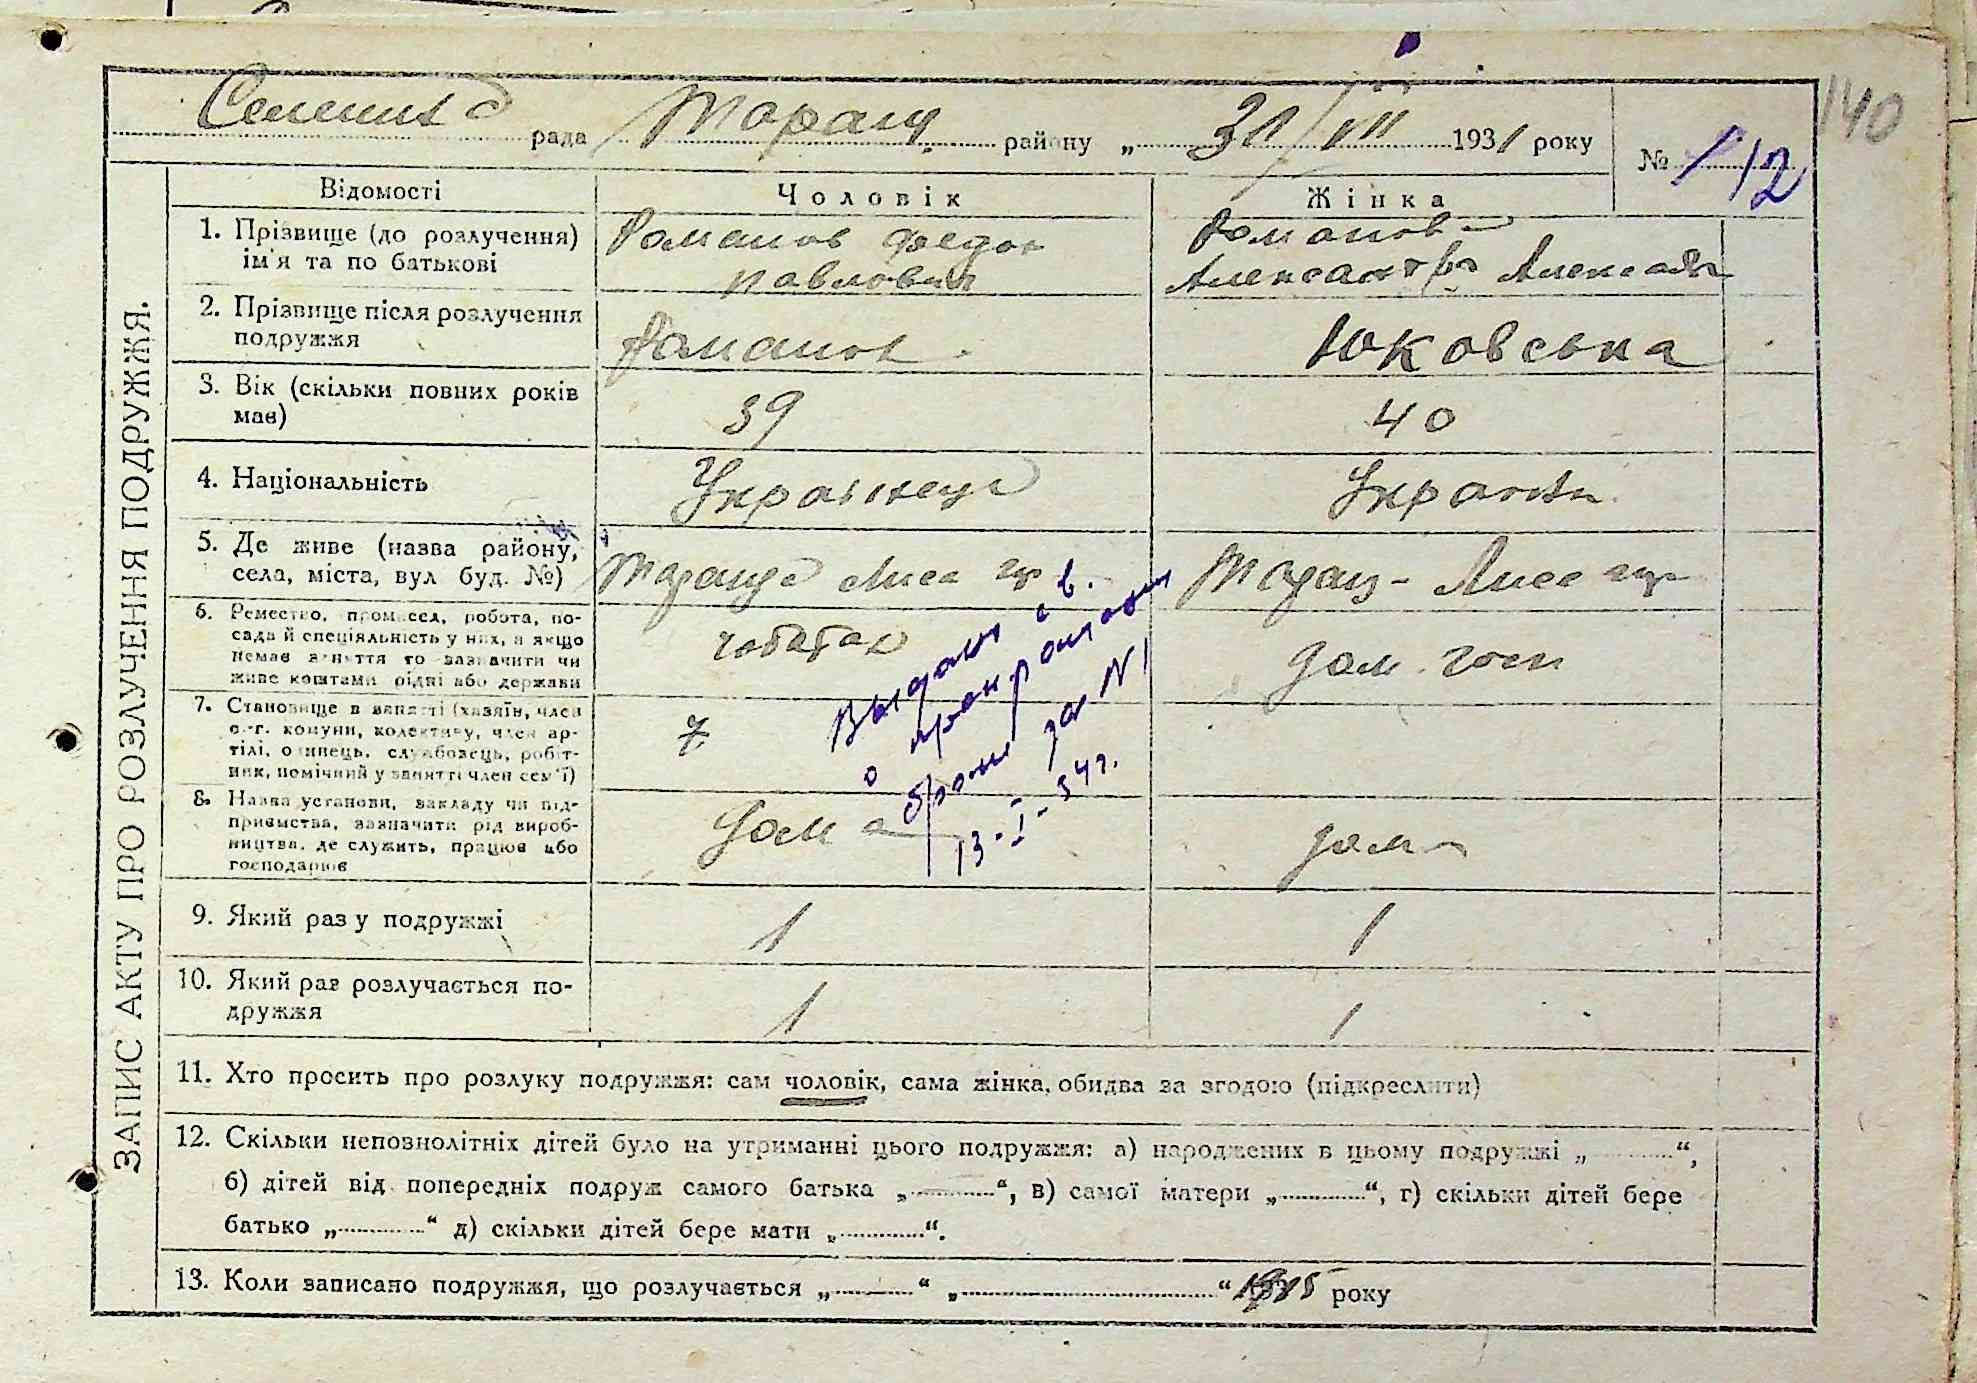 140
рада Таращ. району „ 31/VII 1931 року
№ 112
ЗАПИС АКТУ ПРО РОЗЛУЧЕННЯ ПОДРУЖЖЯ.
Відомості Чоловік Жінка
1. Прізвище (до розлучення) ім'я та по батькові
Романов Федор
Павлович
Романова
Александра Александр
2. Прізвище після розлучення подружжя
Романов
Юковська
3. Вік (скільки повних років має)
39
40
4. Національність
Українець
Українк
5. Де живе (назва району, села, міста, вул буд. №)
Тараща Лиса гор
Таращ- Лиса гор
6. Ремество, промисел, робота, по-
сада й спеціяльність у них, а якщо
немає заняття то зазначити чи
живе коштами рідні або держави
чоботар
дом. госп
7. Становище в занятті (хазяїн, член
с.-г. комуни, колективу, член ар-
тілі, одинець, службовець, робіт-
ник, помічний у занятті член сем'ї)
8. Назва установи, закладу чи під-
приємства, зазначити рід вироб-
ництва, де служить, працює або
господарює
дома
дома
Выдано св.
о
брака за № 1
13-I-54г.
9. Який раз у подружжі
1
1
10. Який раз розлучається по-
дружжя
1
1
11. Хто просить про розлуку подружжя: сам чоловік, сама жінка, обидва за згодою (підкреслити)
12. Скільки неповнолітніх дітей було на утриманні цього подружжя: а) народжених в цьому подружжі „ “,
б) дітей від попередніх подруж самого батька „ “, в) самої матери „ “, г) скільки дітей бере
батько „ “ д) скільки дітей бере мати „ “.
13. Коли записано подружжя, що розлучається „ “ „ “ 1915 року